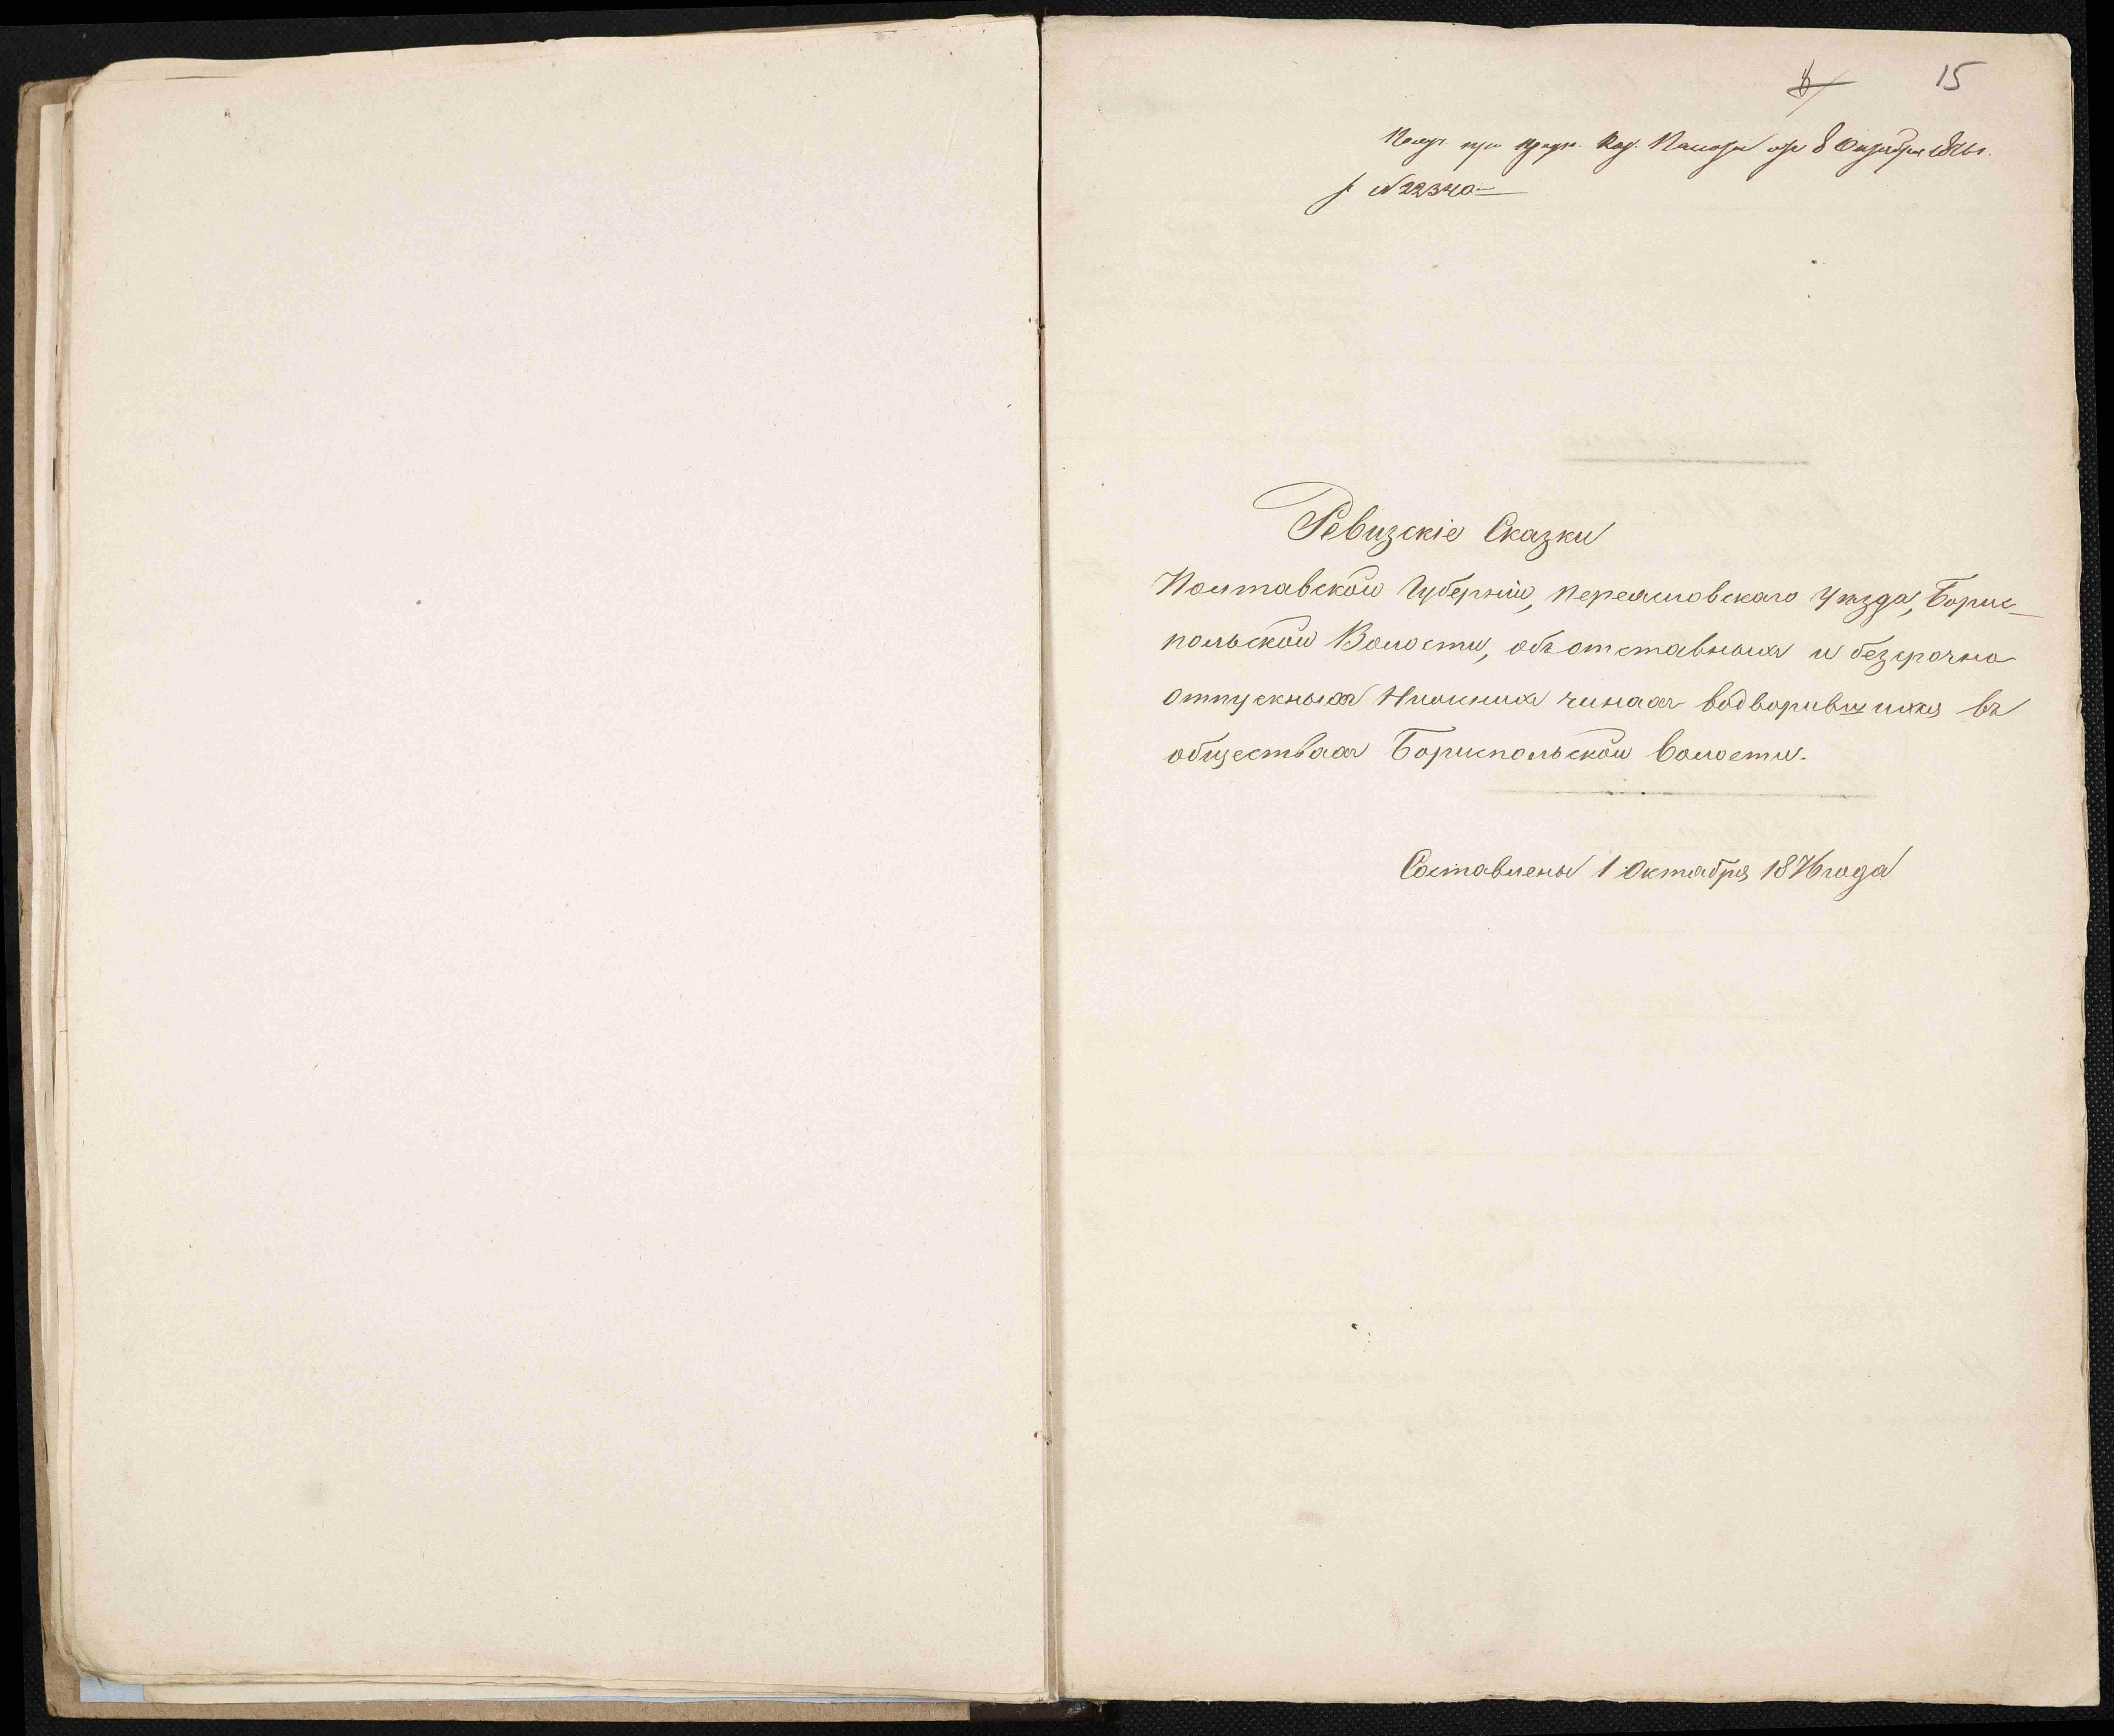 15
8 Октября 1876 г.
№ 22340
Ревизскіе Сказки
Полтавской Губерніи, Переяславскаго Уѣзда, Борис-
польской Волости, объ отставныхъ и безсрочно
отпускныхъ Нижнихъ чинахъ водворившихся въ
обществахъ Бориспольской волости.
Составлены 1 Октября 1876 года